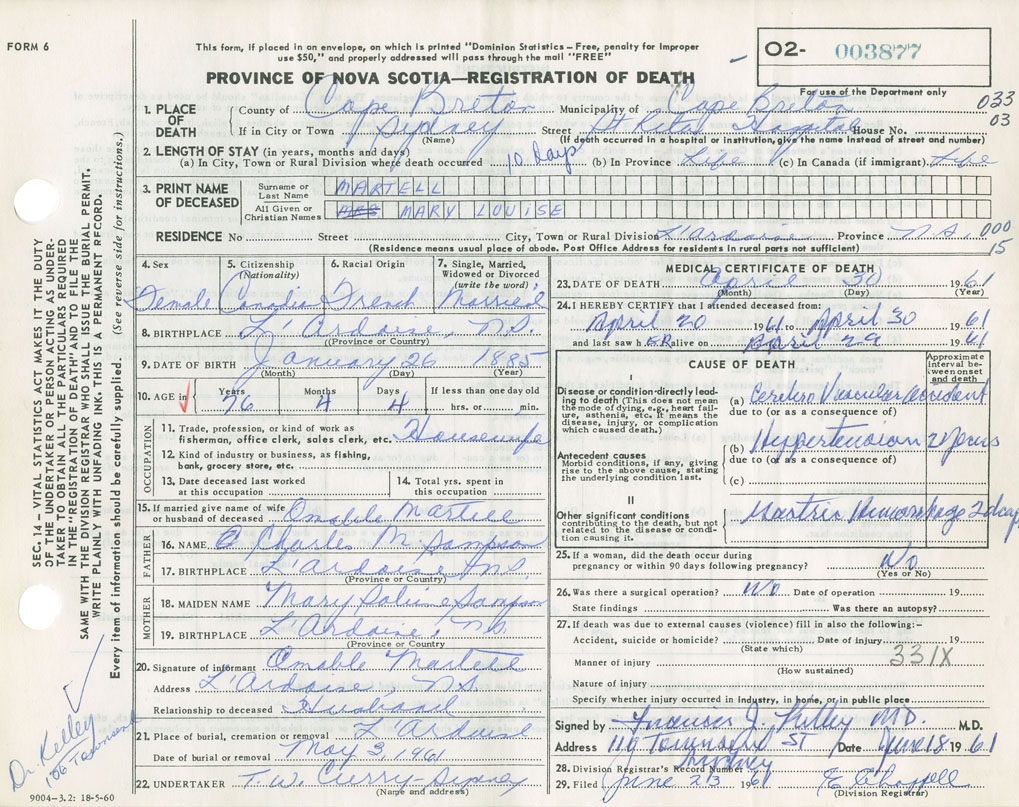 FORM 6
This form, if placed in an envelope, on which is printed "Dominion Statistics – Free, penalty for improper
use $50," and properly addressed will pass through the mail "FREE"
O2- 003877
PROVINCE OF NOVA SCOTIA—REGISTRATION OF DEATH
For use of the Department only
033
03
1. PLACE OF DEATH
County of Cape Breton Municipality of Cape Breton
If in City or Town Sydney Street St Rita Hospital House No.
(Name) (If death occurred in a hospital or institution, give the name instead of street and number)
2. LENGTH OF STAY (in years, months and days)
(a) In City, Town or Rural Division where death occurred 10 Days (b) In Province Life (c) In Canada (if immigrant) Life
3. PRINT NAME OF DECEASED
Surname or Last Name MARTELL
All Given or Christian Names MRS MARY LOUISE
RESIDENCE No Street City, Town or Rural Division L'Ardoise Province N.S.
000
15
(Residence means usual place of abode. Post Office Address for residents in rural parts not sufficient)
4. Sex Female
5. Citizenship (Nationality) Canadian
6. Racial Origin French
7. Single, Married, Widowed or Divorced (write the word) Married
8. BIRTHPLACE L'Ardoise, N.S.
(Province or Country)
9. DATE OF BIRTH January 26 1885
(Month) (Day) (Year)
10. AGE in Years 76 Months 4 Days 4 If less than one day old hrs. or min.
OCCUPATION
11. Trade, profession, or kind of work as fisherman, office clerk, sales clerk, etc. Housewife
12. Kind of industry or business, as fishing, bank, grocery store, etc.
13. Date deceased last worked at this occupation
14. Total yrs. spent in this occupation
15. If married give name of wife or husband of deceased Amable Martell
FATHER
16. NAME Charles M. Sampson
17. BIRTHPLACE L'Ardoise N.S.
(Province or Country)
MOTHER
18. MAIDEN NAME Mary Sampson
19. BIRTHPLACE L'Ardoise, N.S.
(Province or Country
20. Signature of informant Amable Martell
Address L'Ardoise, N.S.
Relationship to deceased Husband
21. Place of burial, cremation or removal L'Ardoise
Date of burial or removal May 3, 1961
22. UNDERTAKER T.W. Curry-Sydney
(Name and address)
9004–3.2: 18-5-60
MEDICAL CERTIFICATE OF DEATH
23. DATE OF DEATH April 30 1961
(Month) (Day) (Year)
24. I HEREBY CERTIFY that I attended deceased from:
April 20 1961 to April 30 1961
and last saw h ER alive on April 29 1961
CAUSE OF DEATH
Approximate interval between onset and death
I
Disease or condition directly leading to death (This does not mean the mode of dying, e.g., heart failure, asthenia, etc. It means the disease, injury, or complication which caused death.)
(a) Cerebro Vascular Accident
due to (or as a consequence of)
Antecedent causes
Morbid conditions, if any, giving rise to the above cause, stating the underlying condition last.
(b) Hypertension 2 years
due to (or as a consequence of)
(c)
II
Other significant conditions contributing to the death, but not related to the disease or condition causing it.
Gastric Hemorrhage 2 days
25. If a woman, did the death occur during pregnancy or within 90 days following pregnancy? No
(Yes or No)
26. Was there a surgical operation? No Date of operation 19
State findings Was there an autopsy?
27. If death was due to external causes (violence) fill in also the following:-
Accident, suicide or homicide? Date of injury 19
(State which)
331X
Manner of injury
(How sustained)
Nature of injury
Specify whether injury occurred in industry, in home, or in public place
Signed by Francis J. Kelley M.D. M.D.
Address 119 Townsend ST Date June 18 1961
Sydney
28. Division Registrar's Record Number
29. Filed June 23 1961 E Chappell
(Division Registrar)
SEC. 14 – VITAL STATISTICS ACT MAKES IT THE DUTY
OF THE UNDERTAKER OR PERSON ACTING AS UNDER-
TAKER TO OBTAIN ALL THE PARTICULARS REQUIRED
IN THE "REGISTRATION OF DEATH" AND TO FILE THE
SAME WITH THE DIVISION REGISTRAR WHO SHALL ISSUE THE BURIAL PERMIT.
WRITE PLAINLY WITH UNFADING INK. THIS IS A PERMANENT RECORD.
Every item of information should be carefully supplied. (See reverse side for instructions.)
Dr. Kelley
Townsend